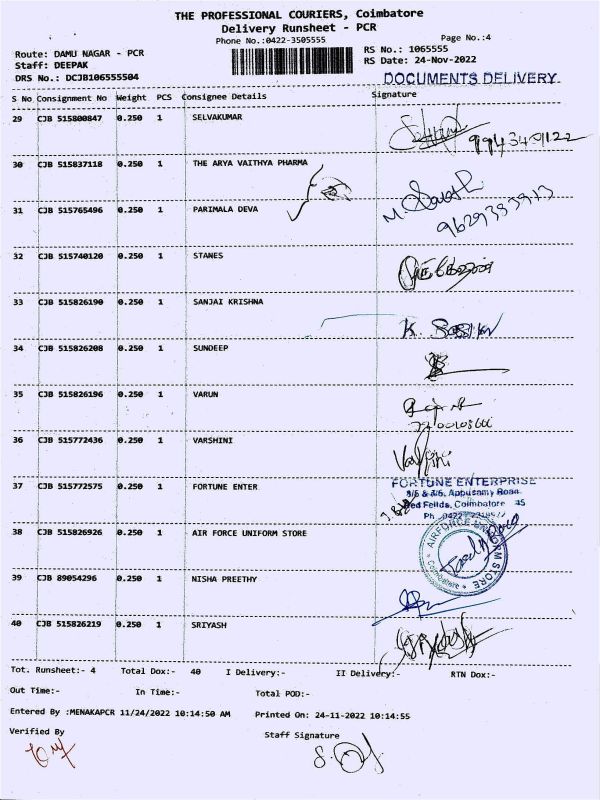 THE PROFESSIONAL COURIERS, Coimbatore
Delivery Runsheet - PCR
Phone No.:0422-3505555
Page No.:4
Route: DAMU NAGAR - PCR
RS No.: 1065555
Staff: DEEPAK
RS Date: 24-Nov-2022
DRS No.: DCJB106555504
DOCUMENTS DELIVERY
S No Consignment No Weight PCS Consignee Details Signature
29 CJB 515800847 0.250 1 SELVAKUMAR
30 CJB 515837118 0.250 1 THE ARYA VAITHYA PHARMA
31 CJB 515765496 0.250 1 PARIMALA DEVA
32 CJB 515740120 0.250 1 STANES
33 CJB 515826190 0.250 1 SANJAI KRISHNA
34 CJB 515826208 0.250 1 SUNDEEP
35 CJB 515826196 0.250 1 VARUN
36 CJB 515772436 0.250 1 VARSHINI
37 CJB 515772575 0.250 1 FORTUNE ENTER
FORTUNE ENTERPRISE
Appusamy Road
Coimbatore
38 CJB 515826926 0.250 1 AIR FORCE UNIFORM STORE
AIRFORCE UNIFORM STORE
Coimbatore
39 CJB 89054296 0.250 1 NISHA PREETHY
40 CJB 515826219 0.250 1 SRIYASH
Tot. Runsheet:- 4 Total Dox:- 40 I Delivery:- II Delivery:- RTN Dox:-
Out Time:- In Time:- Total POD:-
Entered By :MENAKAPCR 11/24/2022 10:14:50 AM Printed On: 24-11-2022 10:14:55
Verified By
Staff Signature